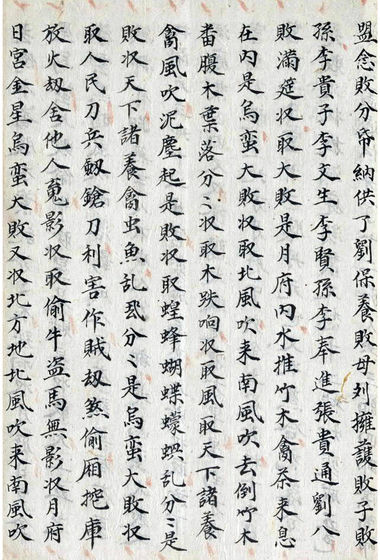 盟念敗分帋納供了劉保養敗母刘擁護敗子敗
孫李貴子李文生李賢孫李奉進張貴通劉八
敗滿筵收取大敗是月府內水推竹木禽茶来息
在內是烏蛮大敗收取北風吹来南風吹去倒竹木
畨腹木葉落分〻收取木跌响收取風取天下諸養
禽風吹泥塵起是敗收取蝗蜂蝴蝶蠓蚣乱分〻是
敗收天下諸養禽虫魚乱飛分〻是烏蛮大敗收
取人民刀兵劔鎗刀利害作賊刼煞偷厢挖庫
放火刼舍他人䰟影收取偷牛盗馬無影收月府
日宮金星烏蛮大敗又收北方地北風吹来南風吹